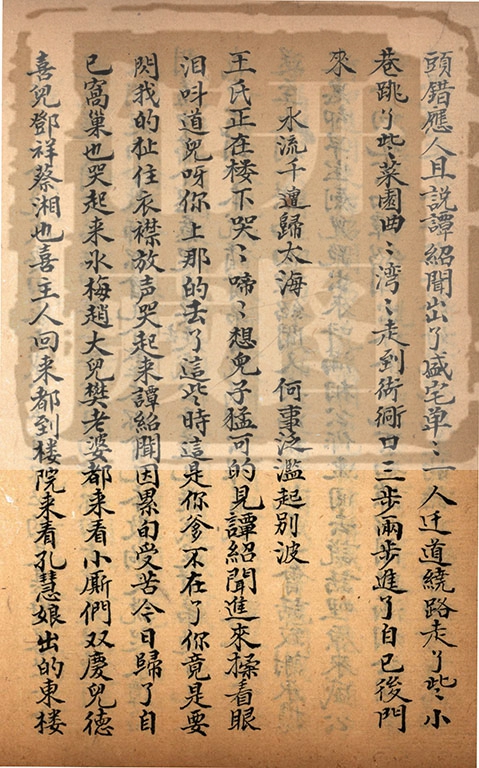 頭錯應人且說譚紹聞出了盛宅单〻一人迂道繞路走了些〻小
巷跳了些〻菜園曲〻湾〻走到衚衕口三步兩步進了自已後門
來
水流千遭歸太海 何事泛濫起别波
王氏正在楼下哭〻啼〻想兒子猛可的見譚紹聞進來揉着眼
泪呌道兒呀你上那的去了這些時這是你爹不在了你竟是要
閃我的扯住衣襟放声哭起来譚紹聞因累旬受苦今日歸了自
已窩巢也哭起来氷梅趙大兒樊老婆都来看小厮們双慶兒德
喜兒鄧祥蔡湘也喜主人回来都到楼院来看孔慧娘出的東楼